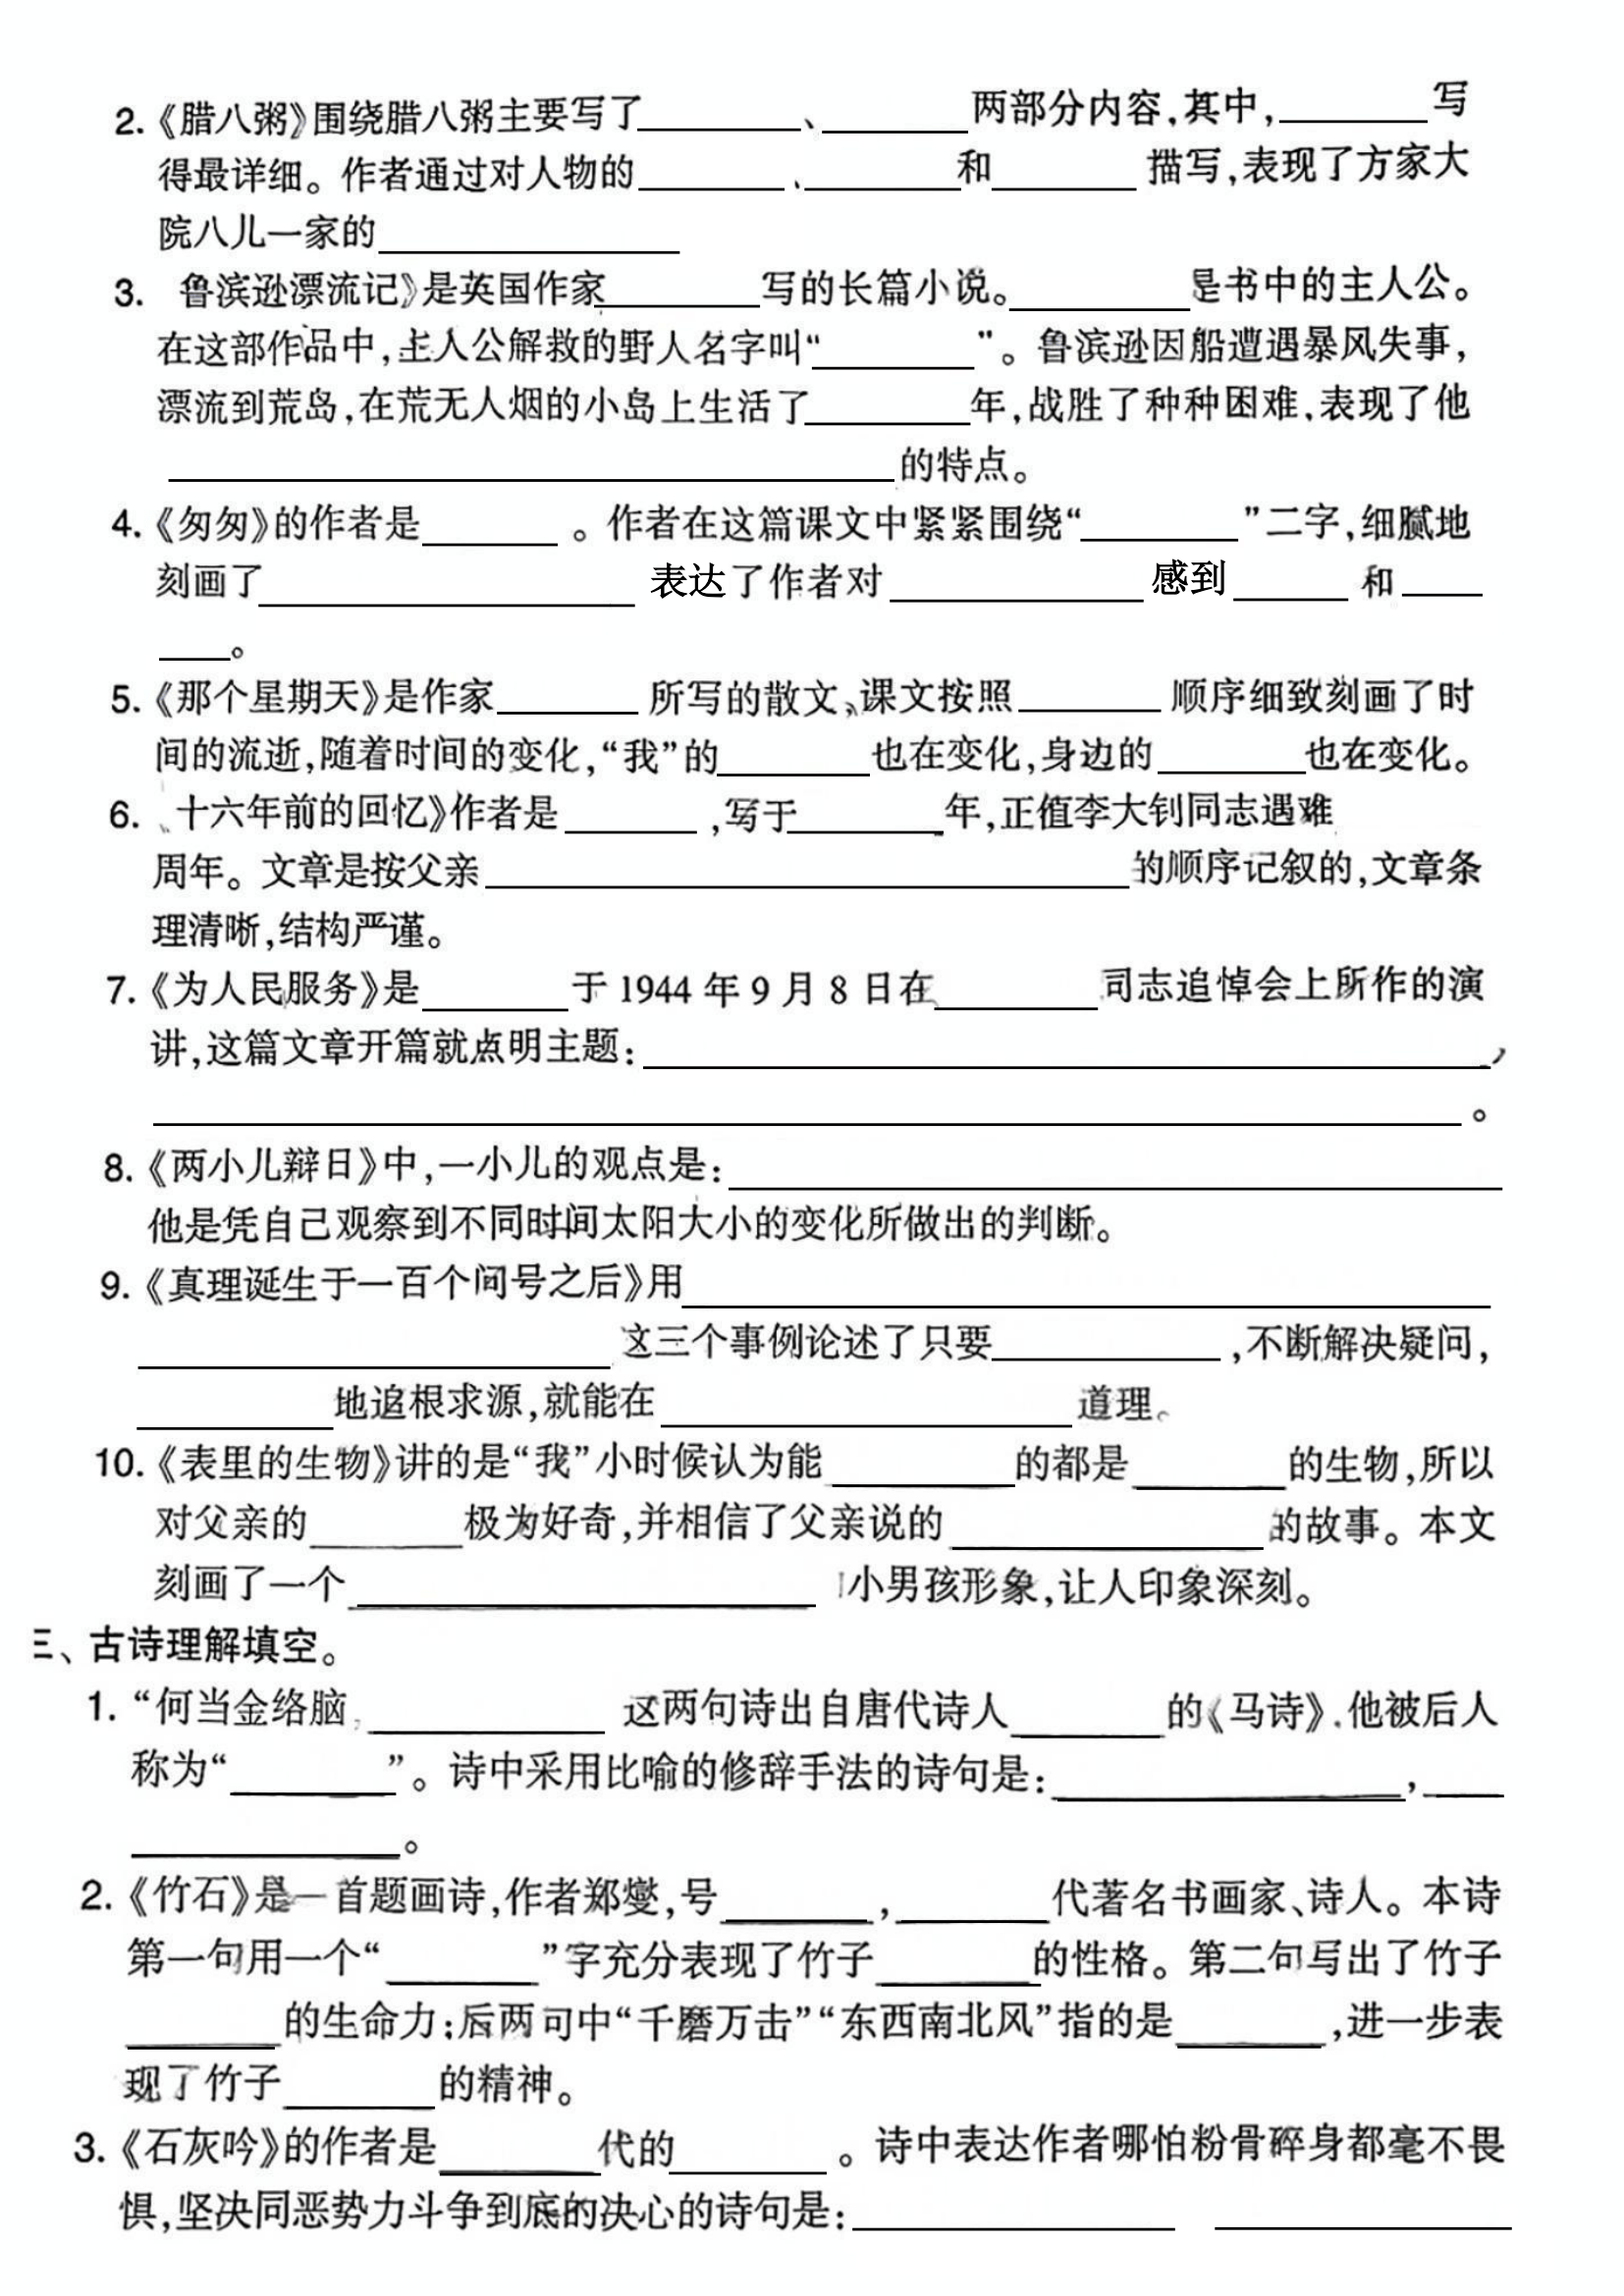 2.《腊八粥》围绕腊八粥主要写了________、________两部分内容,其中,________写
得最详细。作者通过对人物的________、________和________描写,表现了方家大
院八儿一家的________
3. 鲁滨逊漂流记》是英国作家________写的长篇小说。________是书中的主人公。
在这部作品中,主人公解救的野人名字叫“________”。鲁滨逊因船遭遇暴风失事,
漂流到荒岛,在荒无人烟的小岛上生活了________年,战胜了种种困难,表现了他
________的特点。
4.《匆匆》的作者是________。作者在这篇课文中紧紧围绕“________”二字,细腻地
刻画了________ 表达了作者对________感到________和____
____。
5.《那个星期天》是作家________所写的散文,课文按照________顺序细致刻画了时
间的流逝,随着时间的变化,“我”的________也在变化,身边的________也在变化。
6. 十六年前的回忆》作者是________,写于________年,正值李大钊同志遇难
周年。文章是按父亲________的顺序记叙的,文章条
理清晰,结构严谨。
7.《为人民服务》是________于 1944 年 9 月 8 日在________同志追悼会上所作的演
讲,这篇文章开篇就点明主题:________,
________。
8.《两小儿辩日》中,一小儿的观点是:________
他是凭自己观察到不同时间太阳大小的变化所做出的判断。
9.《真理诞生于一百个问号之后》用________
________这三个事例论述了只要________,不断解决疑问,
________地追根求源,就能在________道理。
10.《表里的生物》讲的是“我”小时候认为能________的都是________的生物,所以
对父亲的________极为好奇,并相信了父亲说的________的故事。本文
刻画了一个________小男孩形象,让人印象深刻。
三、古诗理解填空。
1. “何当金络脑,________ 这两句诗出自唐代诗人________的《马诗》.他被后人
称为“________”。诗中采用比喻的修辞手法的诗句是:________,____
________。
2.《竹石》是一首题画诗,作者郑燮,号________,________代著名书画家、诗人。本诗
第一句用一个“________”字充分表现了竹子________的性格。第二句写出了竹子
________的生命力;后两句中“千磨万击”“东西南北风”指的是________,进一步表
现了竹子________的精神。
3.《石灰吟》的作者是________代的________。诗中表达作者哪怕粉骨碎身都毫不畏
惧,坚决同恶势力斗争到底的决心的诗句是:________ ________